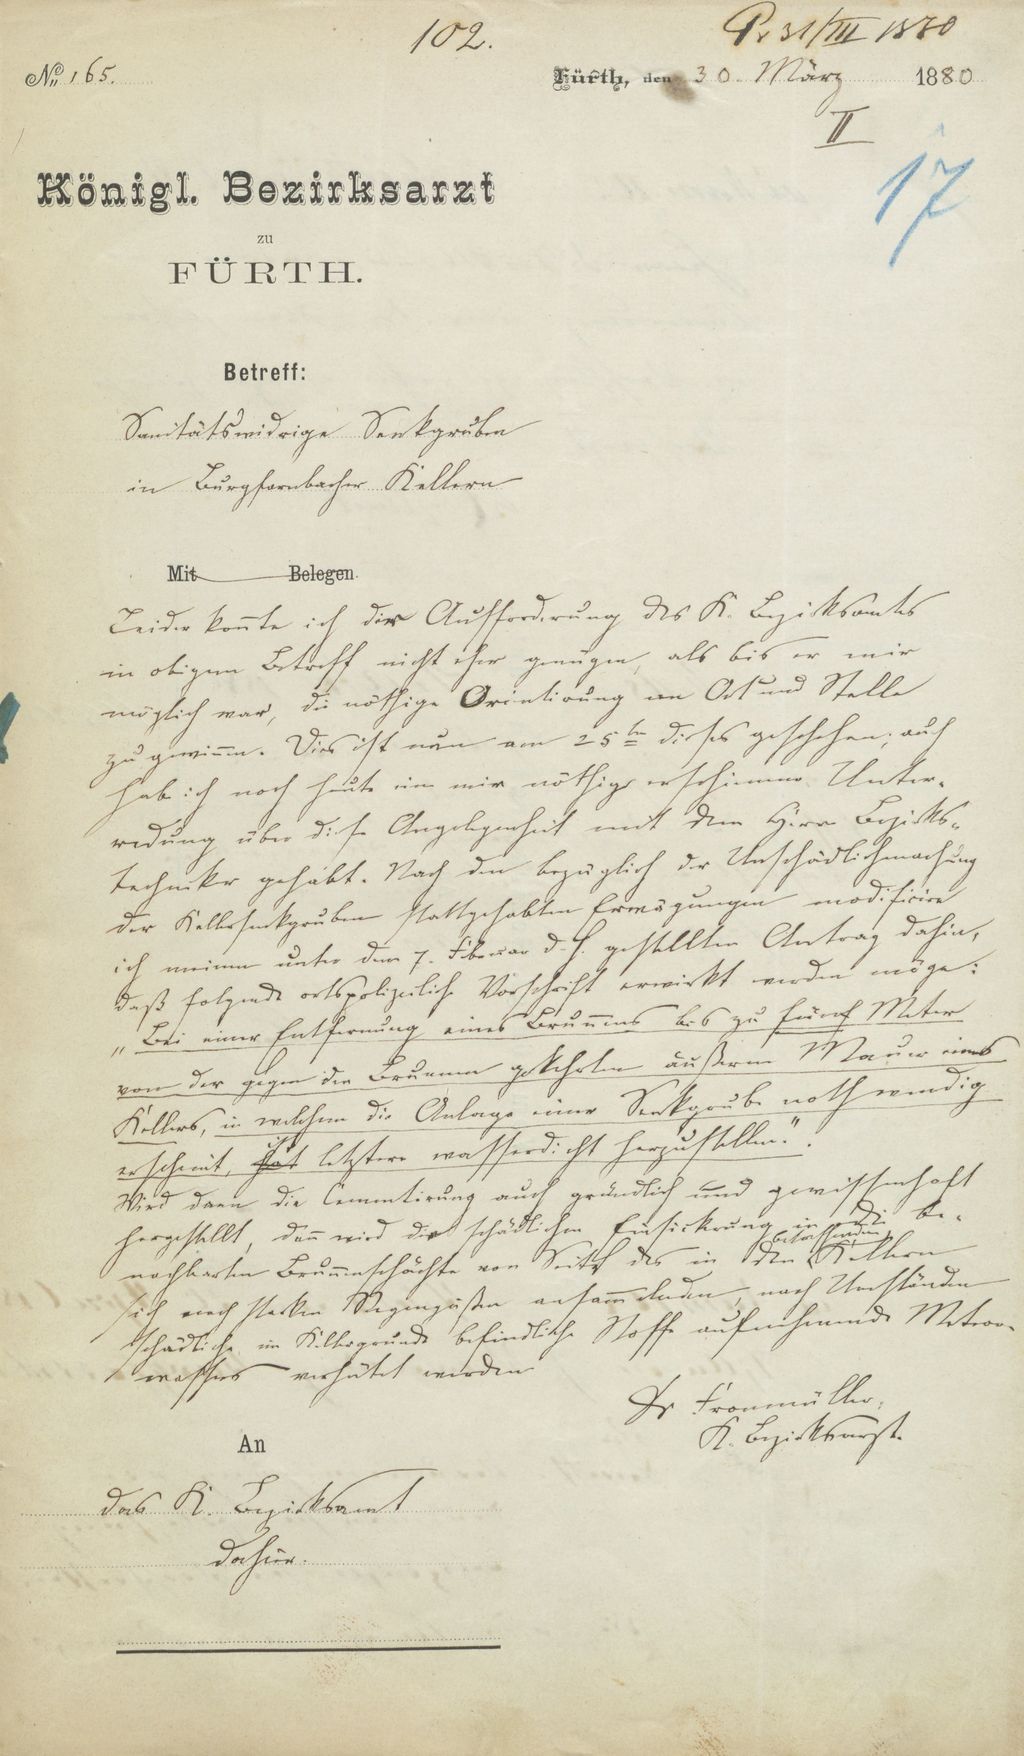 102.
Pr 31/III 1880
No 165.
Fürth, den 30. März 1880
II
17
Königl. Bezirksarzt
zu
FÜRTH.
Betreff:
Sanitätswidrige Senkgruben
in Burgfarnbacher Kellern
Mit Belegen.
Leider konnte ich der Aufforderung des K. Bezirksamtes
in obigem Betreff nicht eher genügen, als bis er mir
möglich war, die nöthige Orientirung an Ort und Stelle
zu gewinnen. Dies ist nun am 25ten dieses geschehen; auch
hab ich noch heute eine mir nöthig erschienene Unter-
redung über diese Angelegenheit mit dem Herrn Bezirks-
techniker gehabt. Nach den bezüglich der Unschädlichmachung
der Kellersenkgruben stattgehabten Erwägungen modificire
ich meinen unter dem 7. Februar d. J. gestellten Antrag dahin,
daß folgende ortspolizeiliche Vorschrift erwirkt werden möge:
„Bei einer Entfernung eines Brunnens bis zu fünf Meter
von der gegen den Brunnen gekehrten äußeren Mauer eines
Kellers, in welchem die Anlage einer Senkgrube nothwendig
erscheint, ist letztere wasserdicht herzustellen."
Wird dann die Cementirung auch gründlich und gewissenhaft
hergestellt, dann wird die schädliche Einsickerung in die be-
nachbarten Brunnenschächte von Seite des in den betreffenden Kellern
sich nach starken Regengüßen ansammelnden, nach Umständen
schädliche im Kellergrunde befindliche Stoffe aufnehmende Meteor-
wassers verhütet werden
Dr Fronmüller,
K. Bezirksarzt.
An
das K. Bezirksamt
dahier.